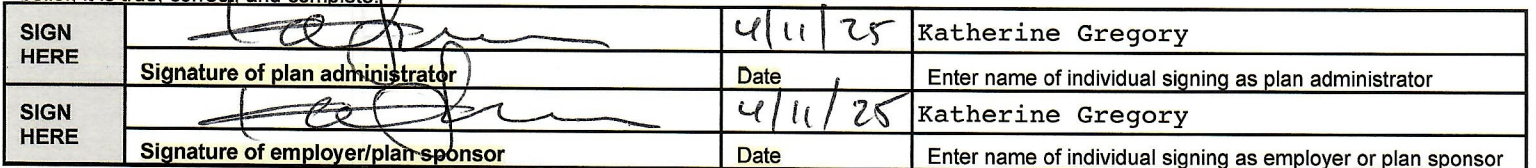 SIGN HERE 4/11/25 Katherine Gregory
Signature of plan administrator Date Enter name of individual signing as plan administrator
SIGN HERE 4/11/25 Katherine Gregory
Signature of employer/plan sponsor Date Enter name of individual signing as employer or plan sponsor